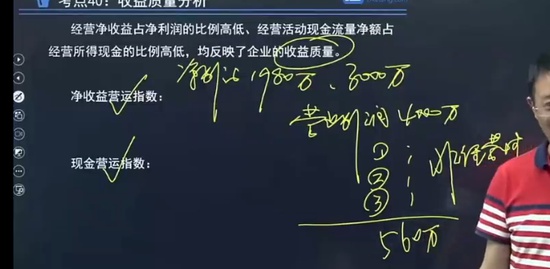 考点40：收益质量分析
经营净收益占净利润的比例高低、经营活动现金流量净额占
经营所得现金的比例高低，均反映了企业的收益质量。
净利润 1980万、3000万
净收益营运指数：
营业利润 4000万
① 
非经营时
②
现金营运指数：
③
560万